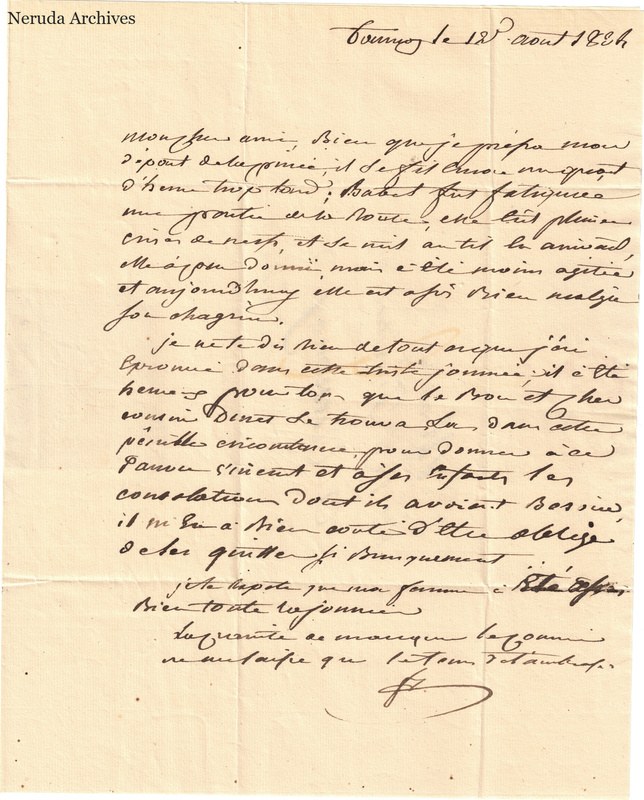 Neruda Archives
le 12 aout
mon cher ami, Bien que je
départ de la il se fit encore un quart
d'heure trop tard; Babet fut fatiguée
une partie de la Route, elle eut plusieurs
crises de nerfs, et se mit au lit en arrivant,
elle a peu dormi, mais a été moins agitée
et aujourd'huy elle est assés Bien malgré
son chagrin.
je ne te dis rien de tout ce que j'ai
Eprouvé dans cette triste journée, il a été
heureux pour tous que le Bon et cher
cousin se trouva La dans cette
pénible circonstance, pour donner à ce
pauvre et à ses Enfants les
consolations Dont ils avoient Besoin,
il m'En a Bien couté d'Etre obligé
de les quitter si Brusquement
je te Repete que ma femme a Eté assés
Bien toute la journée
de manquer le courier
ne me laisse que le tems de t'embrasser